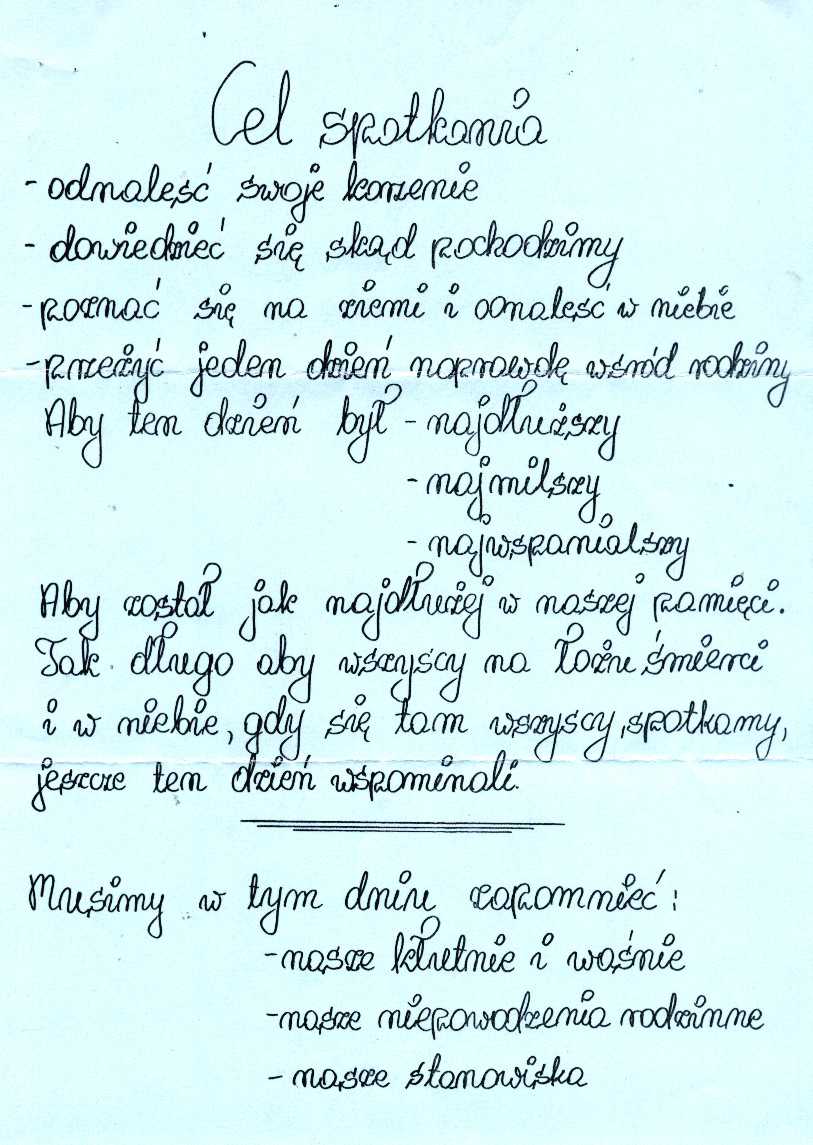 Cel spotkania
- odnaleść swoje korzenie
- dowiedzieć się skąd pochodzimy
- poznać się na ziemi i odnaleść w niebie
- przeżyć jeden dzień naprawdę wśród rodziny
Aby ten dzień był - najdłuższy
- najmilszy
- najwspanialszy
Aby został jak najdłużej w naszej pamięci.
Tak długo aby wszyscy na łożu śmierci
i w niebie, gdy się tam wszyscy, spotkamy,
jeszcze ten dzień wspominali.
Musimy w tym dniu zapomnieć:
- nasze kłutnie i waśnie
- nasze niepowodzenia rodzinne
- nasze stanowiska